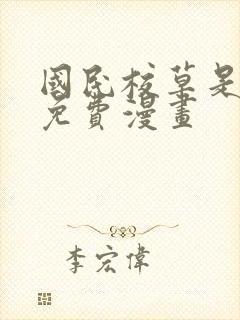 國民校草是
免費漫畫
李宏偉